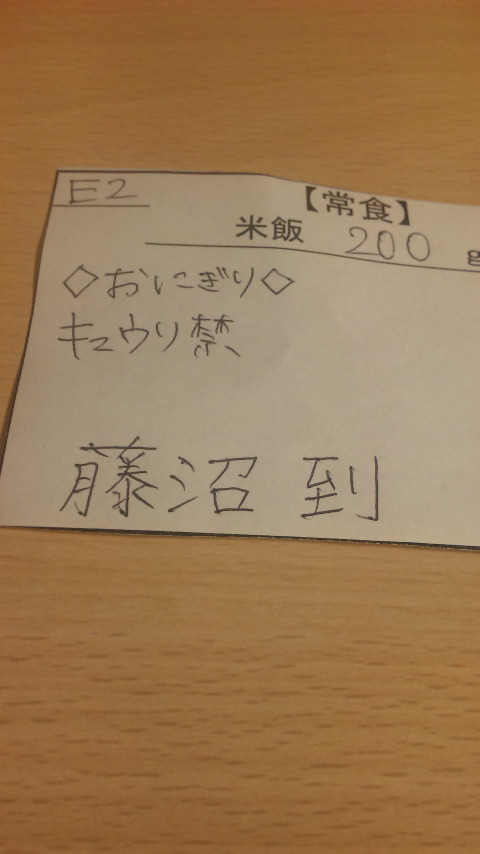 E2
【常食】
米飯 200 g
◇おにぎり◇
キュウリ禁
藤沼 到